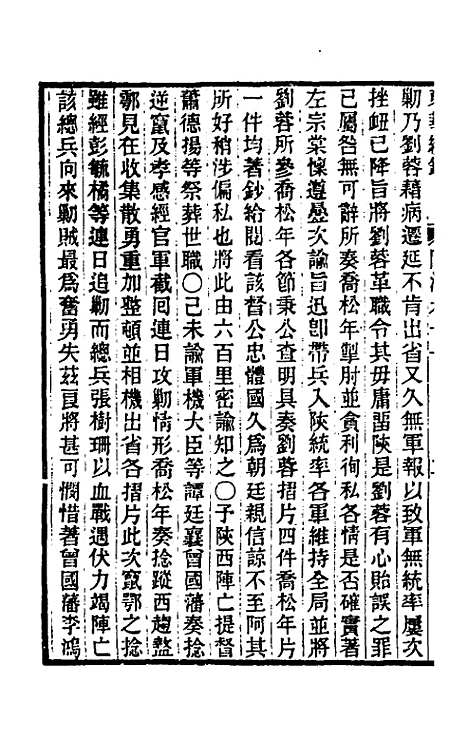 勦乃劉蓉藉病遷延不肯出省又久無軍報以致軍無統率屢次
挫衄已降旨將劉蓉革職令其毋庸畱陝是劉蓉有心貽誤之罪
已屬咎無可辭所奏喬松年掣肘並貪利徇私各情是否確實著
左宗棠懍遵疊次諭旨迅卽帶兵入陝統率各軍維持全局並將
劉蓉所參喬松年各節秉公查明具奏劉蓉摺片四件喬松年片
一件均著鈔給閱看該督公忠體國久爲朝廷親信諒不至阿其
所好稍涉偏私也將此由六百里密諭知之〇予陝西陣亡提督
蕭德揚等祭葬世職〇己未諭軍機大臣等譚廷襄曾國藩奏捻
逆竄及孝感經官軍截囘連日攻勦情形喬松年奏捻蹤西趨盩
鄠見在收集散勇重加整頓並相機出省各摺片此次竄鄂之捻
雖經彭毓橘等連日追勦而總兵張樹珊以血戰遇伏力竭陣亡
該總兵向來勦賊最爲奮勇失茲良將甚可憫惜著曾國藩李鴻